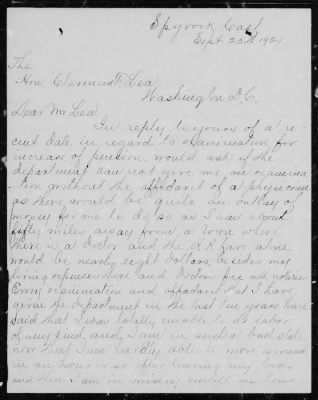 Spyrock Calif
Sept. 25th 1921
The
Hon Clarence F. Lea
Washington D.C.
Dear Mr Lea
In reply to yours of a re-
cent date in regard to examination for
increase of pension, would ask if the
department can not give me an examina
tion without the affidavit of a physician
as there would be quite an outlay of
money for me to do so as I am about
fifty miles away from a town where
there is a doctor and the R.R fare alone
would be nearly eight dollars, besides my
living expenses there and Doctor fee
Every examination and affidavit that I have
given the department in the last ten years have
said that I was totaly unable to do labor
of any kind, and, I am in such a bad state
now that I am hardly able to move around
in an hour or so after leaving my bed,
and then I am in misery untill